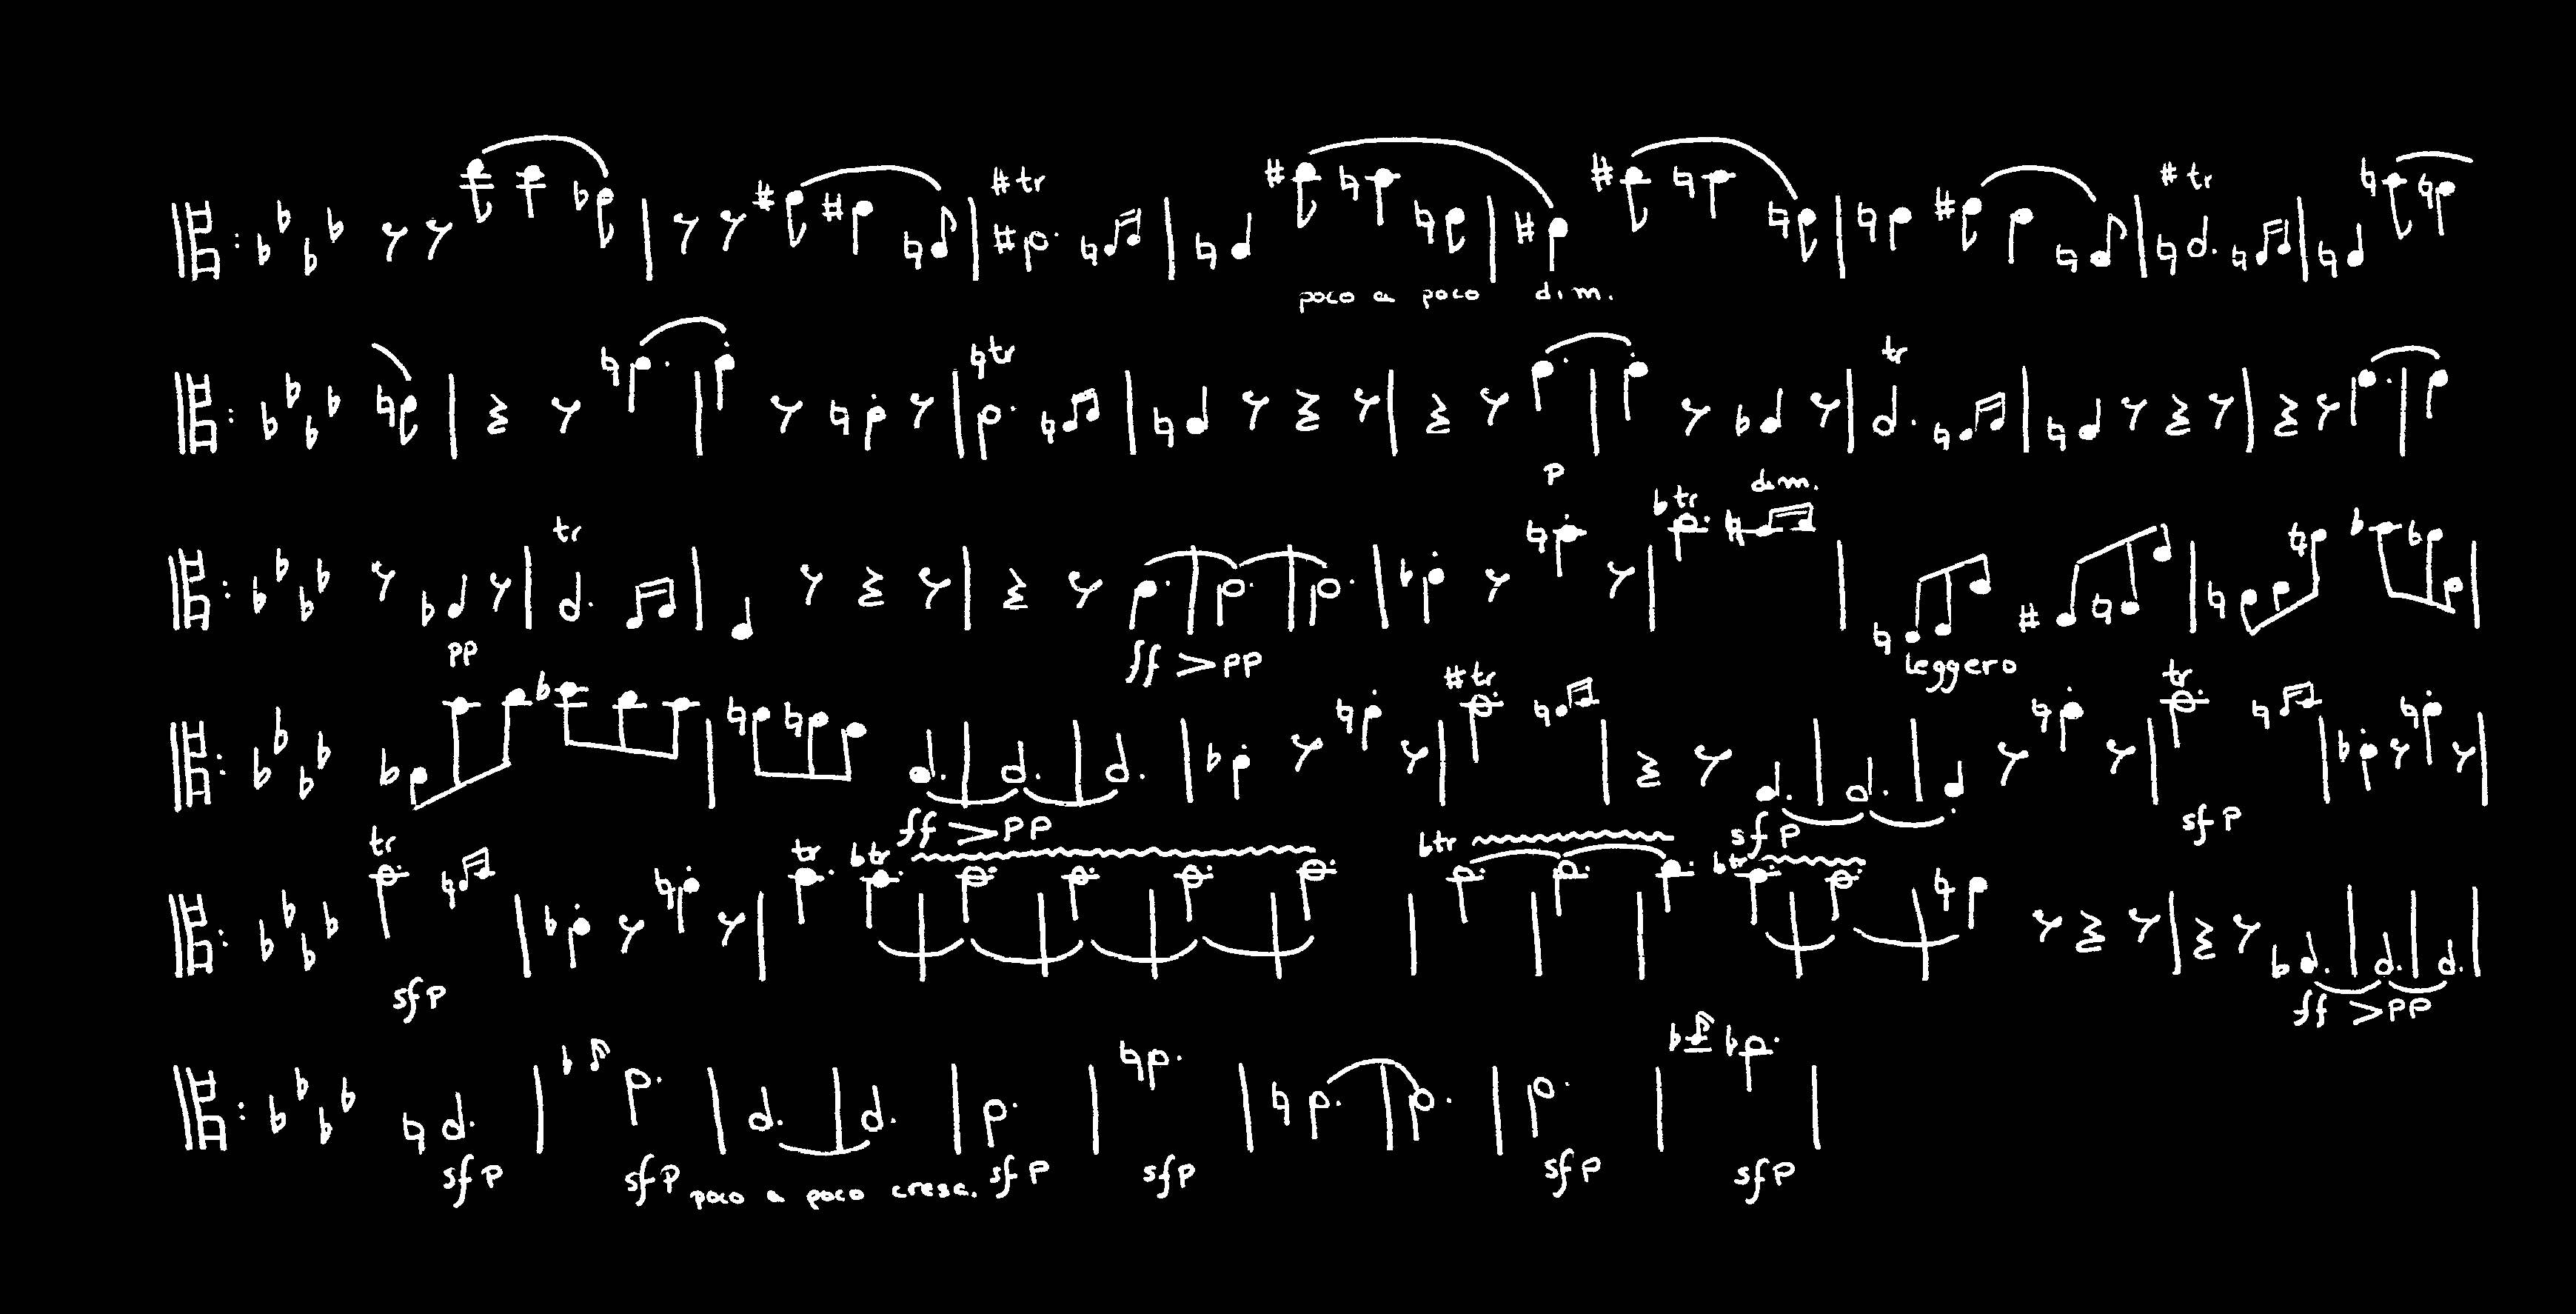 tr
poco a poco dim.
tr
tr
tr
p
tr
tr
dim.
pp
ff > pp
leggero
tr
tr
ff > pp
sfp
sfp
tr
tr
tr
tr
tr
sfp
ff > pp
sfp
sfp
poco a poco cresc.
sfp
sfp
sfp
sfp